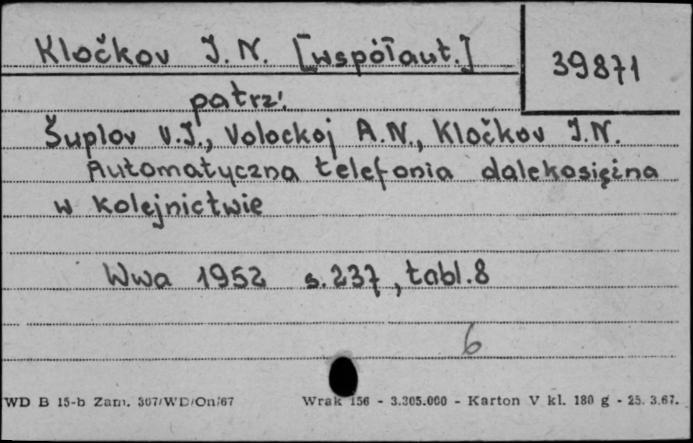 Kločkov J. N. [współaut.]
39871
patrz:
Šuplov V.J., Volockoj A.N., Kločkov J.N.
Automatyczna telefonia dalekosiężna
w kolejnictwie
Wwa 1952 s. 237, tabl. 8
6
WD B 15-b Zam. 307/WD/On/67 Wrak 156 - 3.305.000 - Karton V kl. 180 g - 25. 3.67.